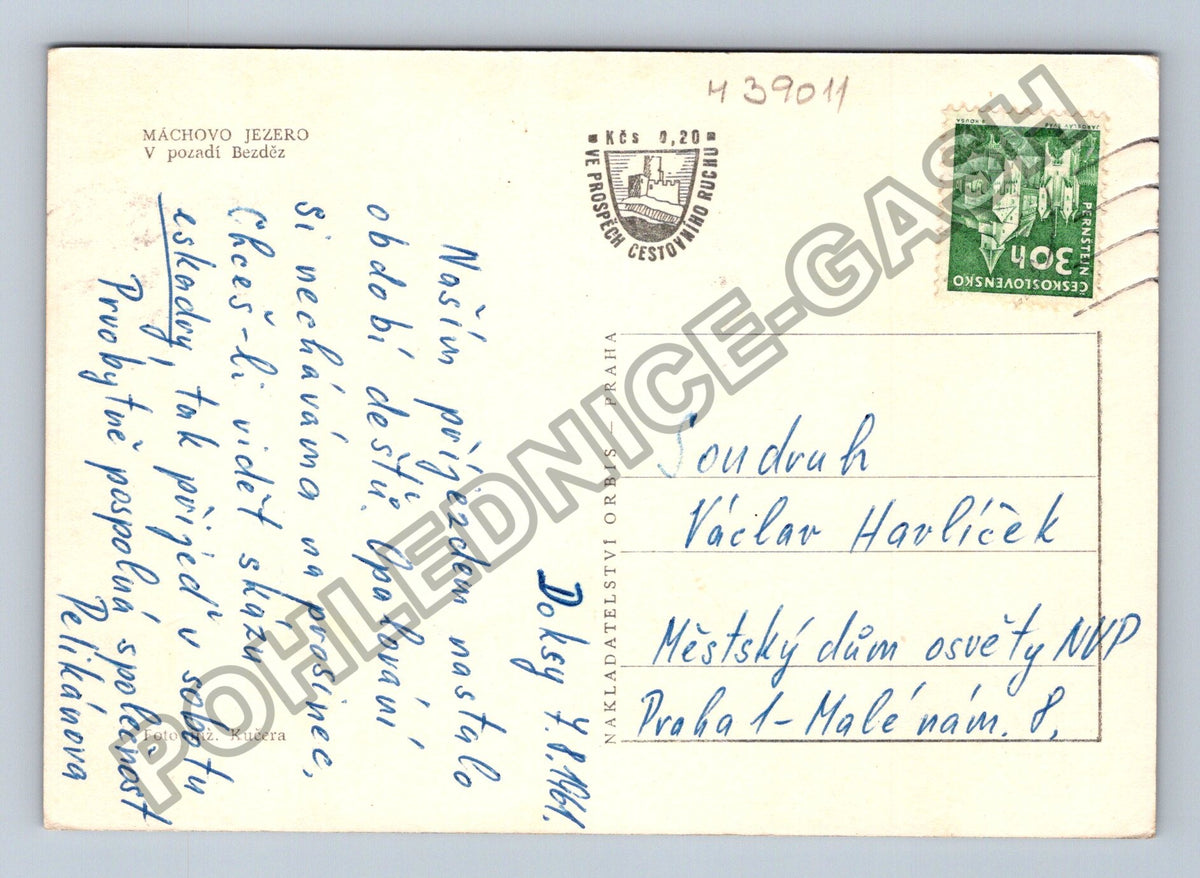 H 39011
MÁCHOVO JEZERO
V pozadí Bezděz
Kčs 0,20
VE PROSPĚCH CESTOVNÍHO RUCHU
ČESKOSLOVENSKO
30h
PERNŠTEJN
Doksy 7.8.1961.
Naším příjezdem nastalo
období dešťů. Opalování
si necháváme na prosinec,
Chceš-li vidět skázu
eskadry, tak přijeď v sobotu
Prvobytně pospolná společnost
Pelikánova
NAKLADATELSTVÍ ORBIS — PRAHA
Soudruh
Václav Havlíček
Městský dům osvěty NVP
Praha 1 - Malé nám. 8,
Foto inž. Kučera
POHLEDNICE-GASH